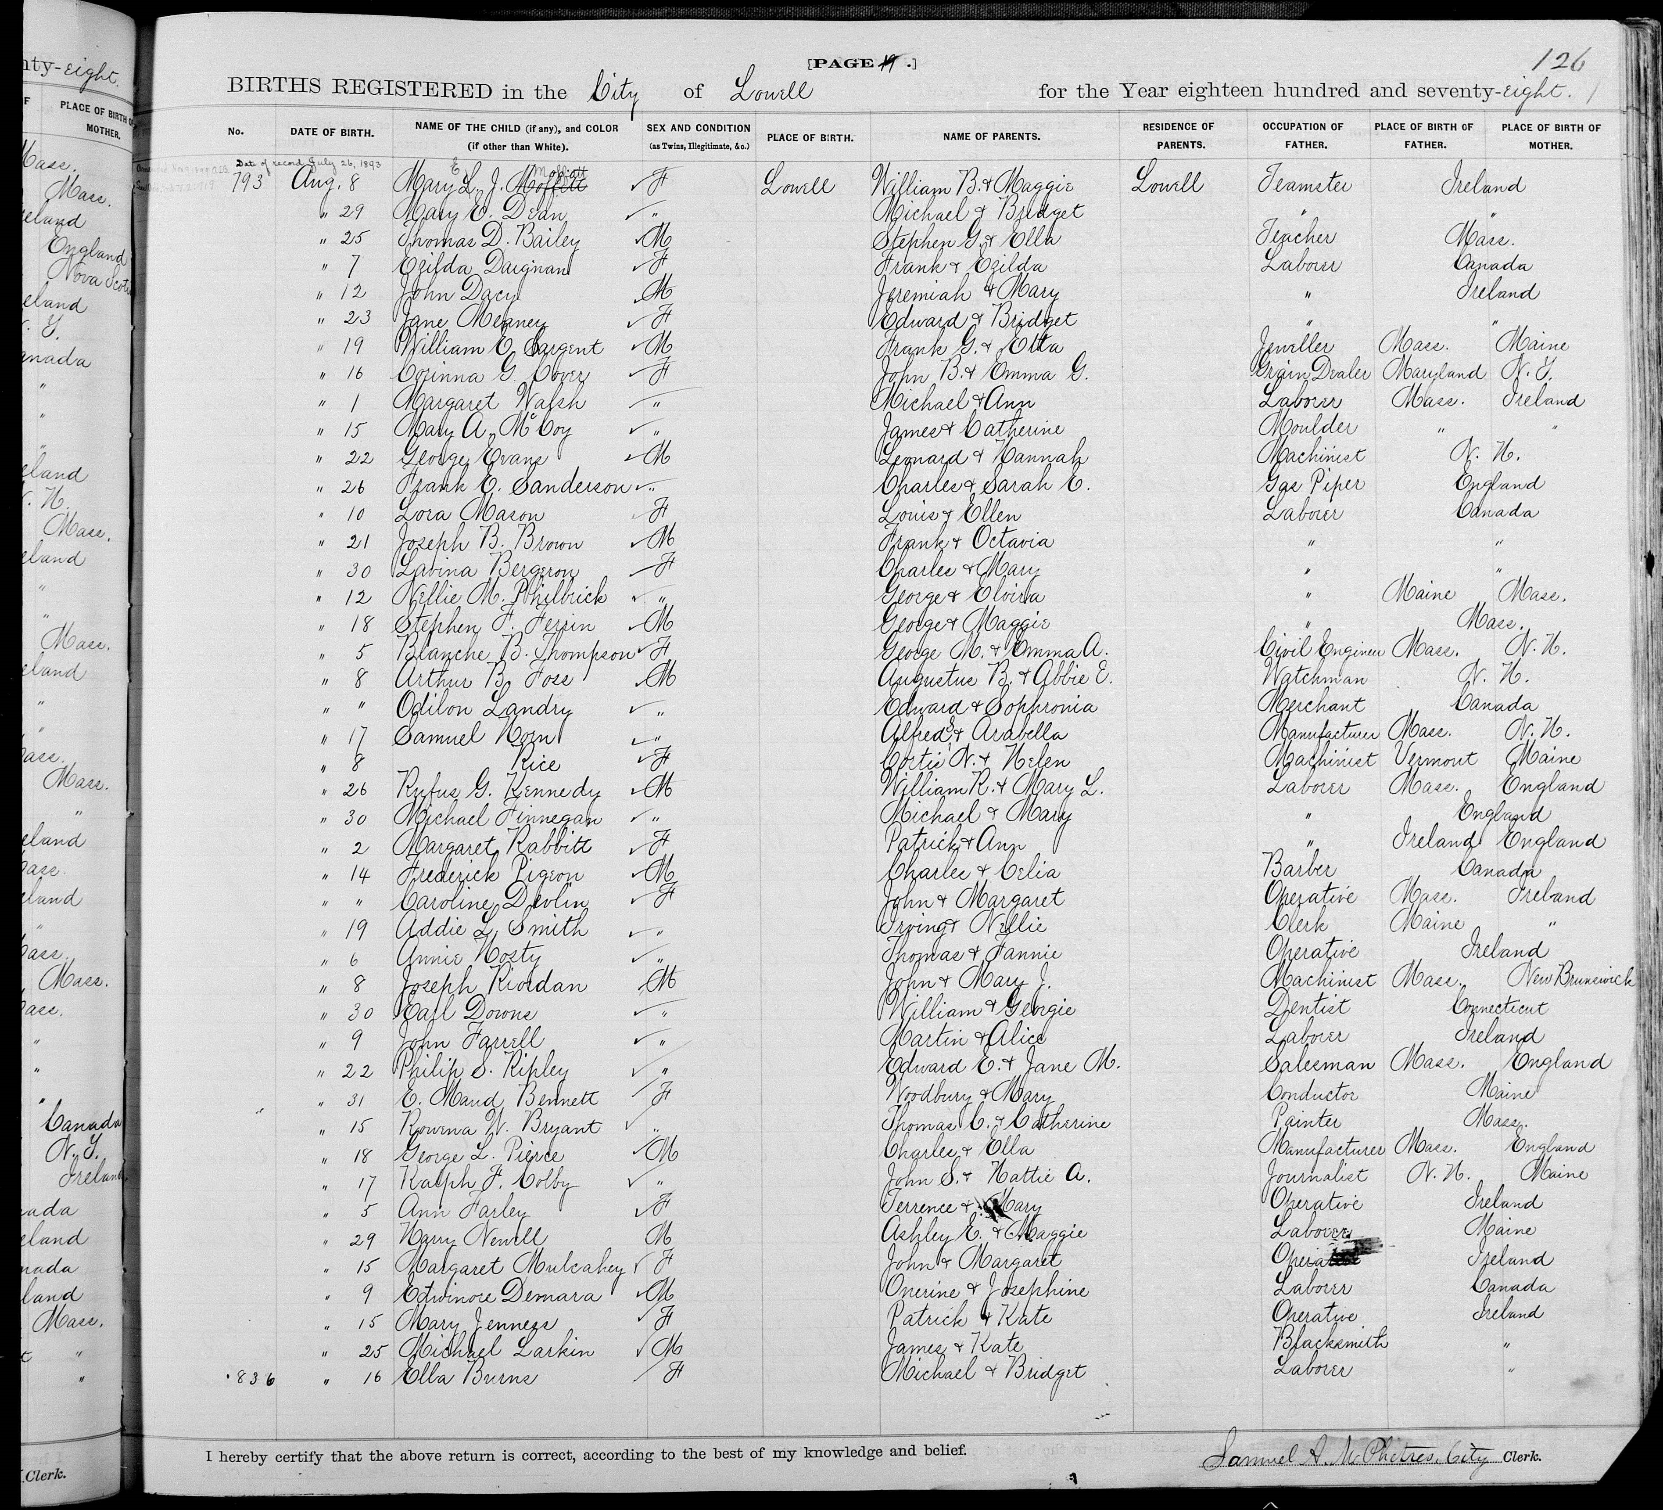 nty-eight.
PLACE OF BIRTH OF
MOTHER.
Mass.
Mass.
eland
England
Nova Scotia
eland
N. Y.
anada
"
"
"
eland
N. H.
Mass.
eland
"
"
Mass.
eland
"
"
Mass.
Mass.
"
eland
Mass.
eland
"
Mass.
Mass.
Mass.
"
"
"
Canada
N. Y.
Ireland
nada
eland
nada
land
Mass.
"
"
Clerk.
126
[PAGE 19 .]
BIRTHS REGISTERED in the City of Lowell for the Year eighteen hundred and seventy-eight.
No. DATE OF BIRTH. NAME OF THE CHILD (if any), and COLOR (if other than White). SEX AND CONDITION (as Twins, Illegitimate, &c.) PLACE OF BIRTH. NAME OF PARENTS. RESIDENCE OF PARENTS. OCCUPATION OF FATHER. PLACE OF BIRTH OF FATHER. PLACE OF BIRTH OF MOTHER.
Date of record July 26, 1893
793 Aug. 8 Mary L. J. Moffitt F Lowell William B. & Maggie Lowell Teamster Ireland
" 29 Mary E. Dean " Michael & Bridget " "
" 25 Thomas D. Bailey M Stephen G. & Ella Teacher Mass.
" 7 Ezilda Daignan F Frank & Ezilda Laborer Canada
" 12 John Dacy M Jeremiah & Mary " Ireland
" 23 Jane Meaney F Edward & Bridget " "
" 19 William E. Sargent M Frank G. & Etta Jeweller Mass. Maine
" 16 Corinna G. Cover F John B. & Emma G. Grain Dealer Maryland N. Y.
" 1 Margaret Walsh " Michael & Ann Laborer Mass. Ireland
" 15 Mary A. McCoy " James & Catherine Moulder " "
" 22 George Evans M Leonard & Hannah Machinist N. H.
" 26 Frank E. Sanderson " Charles & Sarah E. Gas Piper England
" 10 Lora Mason F Louis & Ellen Laborer Canada
" 21 Joseph B. Brown M Frank & Octavia " "
" 30 Lavina Bergeron F Charles & Mary " "
" 12 Nellie M. Philbrick " George & Elvira " Maine Mass.
" 18 Stephen F. Ferrin M George & Maggie " Mass.
" 5 Blanche B. Thompson F George M. & Emma A. Civil Engineer Mass. N. H.
" 8 Arthur B. Foss M Augustus B. & Abbie E. Watchman N. H.
" " Odilon Landry " Edward & Sophronia Merchant Canada
" 17 Samuel Horn " Alfred & Arabella Manufacturer Mass. N. H.
" 8 Rice F Cortis N. & Helen Machinist Vermont Maine
" 26 Rufus G. Kennedy M William R. & Mary L. Laborer Mass. England
" 30 Michael Finnegan " Michael & Mary " England
" 2 Margaret Rabbitt F Patrick & Ann " Ireland England
" 14 Frederick Pigeon M Charles & Celia Barber Canada
" " Caroline Devlin F John & Margaret Operative Mass. Ireland
" 19 Addie L. Smith " Irving & Nellie Clerk Maine "
" 6 Annie Hosty " Thomas & Fannie Operative Ireland
" 8 Joseph Riordan M John & Mary J. Machinist Mass. New Brunswick
" 30 Earl Downs " William & Georgie Dentist Connecticut
" 9 John Farrell " Martin & Alice Laborer Ireland
" 22 Philip S. Ripley " Edward E. & Jane M. Salesman Mass. England
" 31 E. Maud Bennett F Woodbury & Mary Conductor Maine
" 15 Rowena W. Bryant " Thomas C. & Catherine Painter Mass.
" 18 George L. Pierce M Charles & Ella Manufacturer Mass. England
" 17 Ralph F. Colby " John S. & Hattie A. Journalist N. H. Maine
" 5 Ann Farley F Terrence & Mary Operative Ireland
" 29 Harry Newell M Ashley E. & Maggie Laborer Maine
" 15 Margaret Mulcahey F John & Margaret Operative Ireland
" 9 Edwinore Demara M Onerine & Josephine Laborer Canada
" 15 Mary Jenness F Patrick & Kate Operative Ireland
" 25 Michael Larkin M James & Kate Blacksmith "
836 " 16 Ella Burns F Michael & Bridget Laborer "
I hereby certify that the above return is correct, according to the best of my knowledge and belief.
Samuel A. McPhetres, City Clerk.